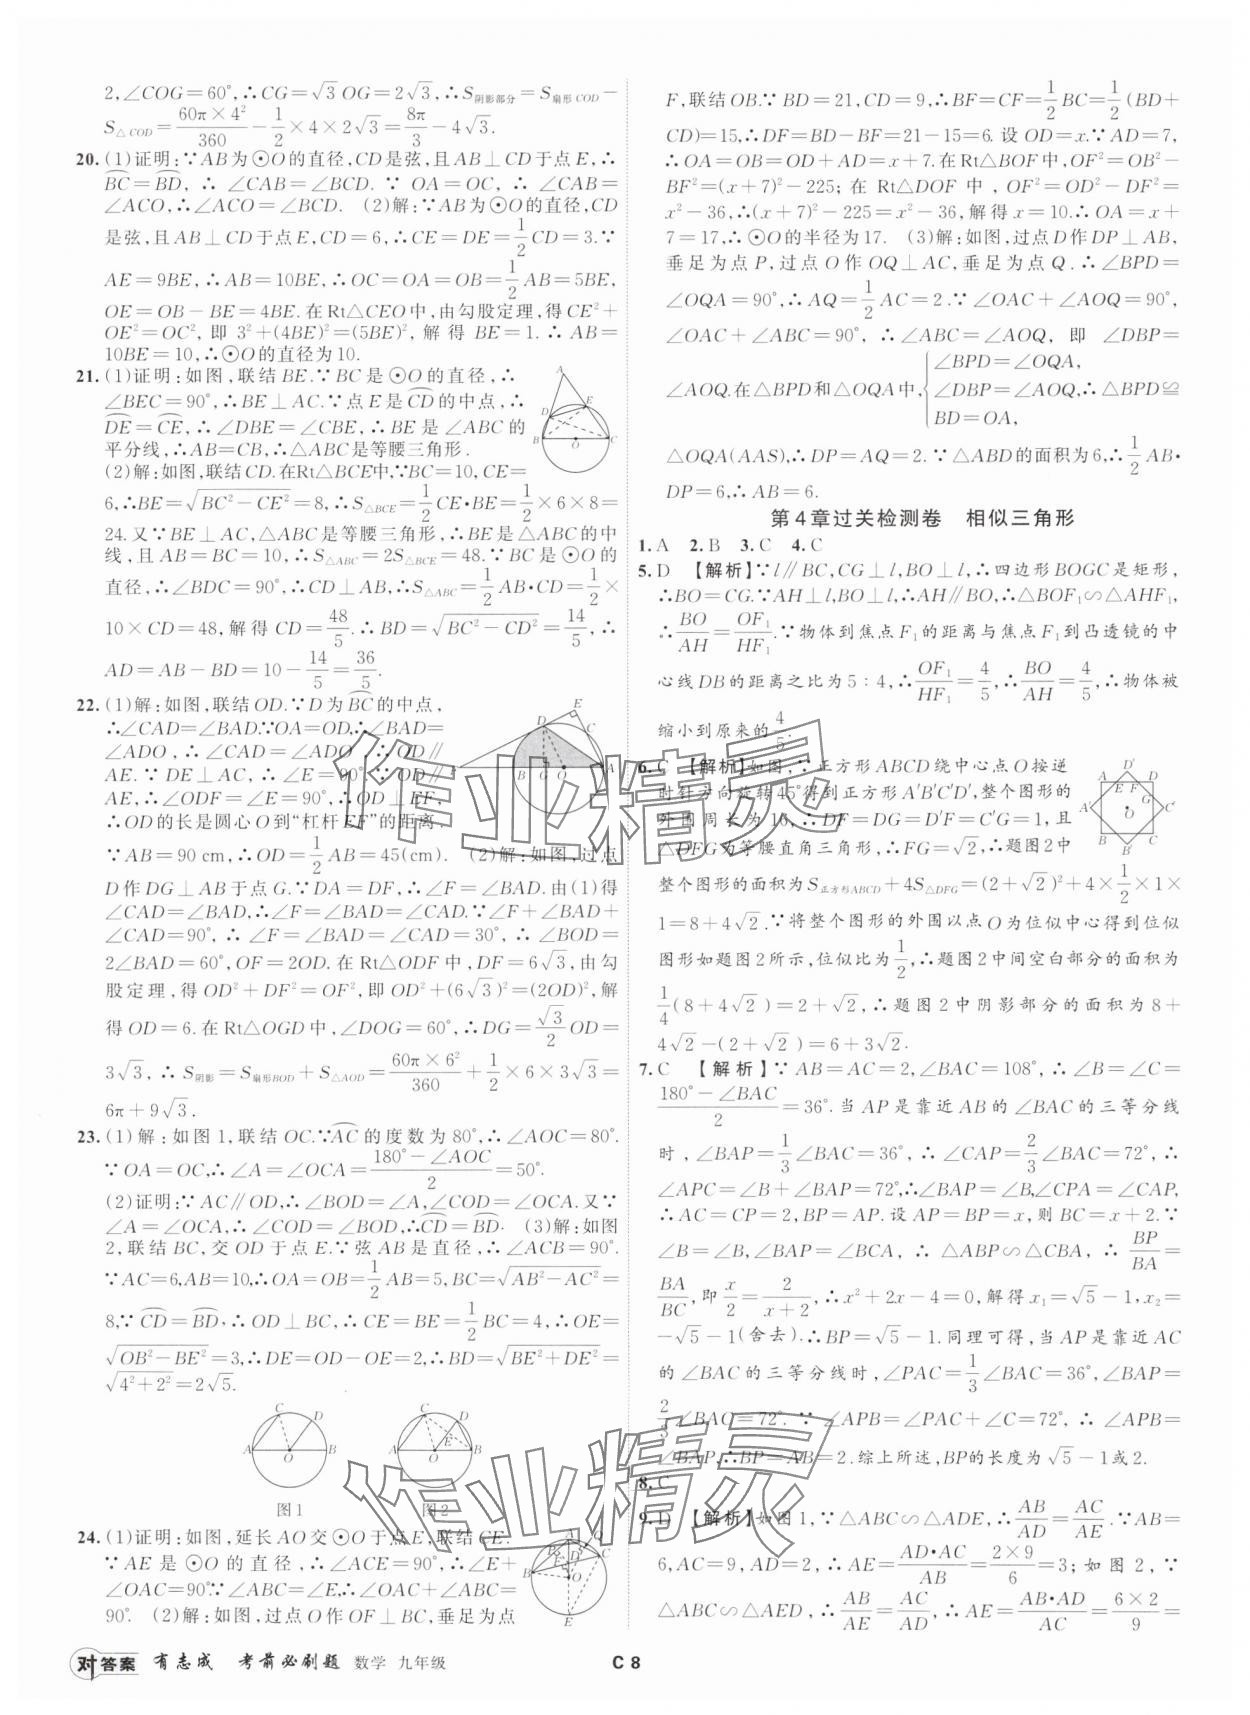 2,∠COG=60°,∴CG=√3 OG=2√3,∴S阴影部分=S扇形COD-
S△COD=60π×4²/360-1/2×4×2√3=8π/3-4√3.
20.(1)证明:∵AB为⊙O的直径,CD是弦,且AB⊥CD于点E,∴
BC=BD,∴∠CAB=∠BCD.∵OA=OC,∴∠CAB=
∠ACO,∴∠ACO=∠BCD. (2)解:∵AB为⊙O的直径,CD
是弦,且AB⊥CD于点E,CD=6,∴CE=DE=1/2CD=3.∵
AE=9BE,∴AB=10BE,∴OC=OA=OB=1/2AB=5BE,
OE=OB-BE=4BE.在Rt△CEO中,由勾股定理,得CE²+
OE²=OC²,即3²+(4BE)²=(5BE)²,解得BE=1.∴AB=
10BE=10,∴⊙O的直径为10.
21.(1)证明:如图,联结BE.∵BC是⊙O的直径,∴
∠BEC=90°,∴BE⊥AC.∵点E是CD的中点,∴
DE=CE,∴∠DBE=∠CBE,∴BE是∠ABC的
平分线,∴AB=CB,∴△ABC是等腰三角形.
(2)解:如图,联结CD.在Rt△BCE中,∵BC=10,CE=
6,∴BE=√(BC²-CE²)=8,∴S△BCE=1/2CE·BE=1/2×6×8=
24.又∵BE⊥AC,△ABC是等腰三角形,∴BE是AC的中
线,且AB=BC=10,∴S△ABC=2S△BCE=48.∵BC是⊙O的
直径,∴∠BDC=90°,∴CD⊥AB,∴S△ABC=1/2AB·CD=1/2×
10×CD=48,解得CD=48/5.∴BD=√(BC²-CD²)=14/5,∴
AD=AB-BD=10-14/5=36/5.
22.(1)解:如图,联结OD.∵D为BC的中点,
∴∠CAD=∠BAD.∵OA=OD,∴∠BAD=
∠ADO,∴∠CAD=∠ADO,∴OD∥
AE.∵DE⊥AC,∴∠E=90°.∴OD⊥EF,
∴OD的长是圆心O到“杠杆EF”的距离.
∵AB=90 cm,∴OD=1/2AB=45(cm). (2)解:如图,过点
D作DG⊥AB于点G.∵DA=DF,∴∠F=∠BAD.由(1)得
∠CAD=∠BAD,∴∠F=∠BAD=∠CAD.∵∠F+∠BAD+
∠CAD=90°,∴∠F=∠BAD=∠CAD=30°,∴∠BOD=
2∠BAD=60°,OF=2OD.在Rt△ODF中,DF=6√3,由勾
股定理,得OD²+DF²=OF²,即OD²+(6√3)²=(2OD)²,解
得OD=6.在Rt△OGD中,∠DOG=60°,∴DG=√3/2OD=
3√3,∴S阴影=S扇形BOD+S△AOD=60π×6²/360+1/2×6×3√3=
6π+9√3.
23.(1)解:如图1,联结OC.∵AC的度数为80°,∴∠AOC=80°.
∵OA=OC,∴∠A=∠OCA=(180°-∠AOC)/2=50°.
(2)证明:∵AC∥OD,∴∠BOD=∠A,∠COD=∠OCA.又∵
∠A=∠OCA,∴∠COD=∠BOD,∴CD=BD. (3)解:如图
2,联结BC,交OD于点E.∵弦AB是直径,∴∠ACB=90°.
∵AC=6,AB=10,∴OA=OB=1/2AB=5,BC=√(AB²-AC²)=
8,∵CD=BD,∴OD⊥BC,∴CE=BE=1/2BC=4,∴OE=
√(OB²-BE²)=3,∴DE=OD-OE=2,∴BD=√(BE²+DE²)=
√(4²+2²)=2√5.
图1 图2
24.(1)证明:如图,延长AO交⊙O于点E,联结CE.
∵AE是⊙O的直径,∴∠ACE=90°,∴∠E+
∠OAC=90°.∵∠ABC=∠E,∴∠OAC+∠ABC=
90°. (2)解:如图,过点O作OF⊥BC,垂足为点
F,联结OB.∵BD=21,CD=9,∴BF=CF=1/2BC=1/2(BD+
CD)=15,∴DF=BD-BF=21-15=6.设OD=x.∵AD=7,
∴OA=OB=OD+AD=x+7.在Rt△BOF中,OF²=OB²-
BF²=(x+7)²-225;在Rt△DOF中,OF²=OD²-DF²=
x²-36,∴(x+7)²-225=x²-36,解得x=10.∴OA=x+
7=17,∴⊙O的半径为17. (3)解:如图,过点D作DP⊥AB,
垂足为点P,过点O作OQ⊥AC,垂足为点Q.∴∠BPD=
∠OQA=90°,∴AQ=1/2AC=2.∵∠OAC+∠AOQ=90°,
∠OAC+∠ABC=90°,∴∠ABC=∠AOQ,即∠DBP=
∠AOQ.在△BPD和△OQA中,{∠BPD=∠OQA,
∠DBP=∠AOQ,∴△BPD≌
BD=OA,
△OQA(AAS),∴DP=AQ=2.∵△ABD的面积为6,∴1/2AB·
DP=6,∴AB=6.
第4章过关检测卷 相似三角形
1.A 2.B 3.C 4.C
5.D 【解析】∵l∥BC,CG⊥l,BO⊥l,∴四边形BOGC是矩形,
∴BO=CG.∵AH⊥l,BO⊥l,∴AH∥BO,∴△BOF₁∽△AHF₁,
∴BO/AH=OF₁/HF₁.∵物体到焦点F₁的距离与焦点F₁到凸透镜的中
心线DB的距离之比为5:4,∴OF₁/HF₁=4/5,∴BO/AH=4/5,∴物体被
缩小到原来的4/5.
6.C 【解析】如图,∵正方形ABCD绕中心点O按逆
时针方向旋转45°得到正方形A'B'C'D',整个图形的
外围周长为16,∴DF=DG=D'F=C'G=1,且
△DFG为等腰直角三角形,∴FG=√2,∴题图2中
整个图形的面积为S正方形ABCD+4S△DFG=(2+√2)²+4×1/2×1×
1=8+4√2.∵将整个图形的外围以点O为位似中心得到位似
图形如题图2所示,位似比为1/2,∴题图2中间空白部分的面积为
1/4(8+4√2)=2+√2,∴题图2中阴影部分的面积为8+
4√2-(2+√2)=6+3√2.
7.C 【解析】∵AB=AC=2,∠BAC=108°,∴∠B=∠C=
(180°-∠BAC)/2=36°.当AP是靠近AB的∠BAC的三等分线
时,∠BAP=1/3∠BAC=36°,∴∠CAP=2/3∠BAC=72°,∴
∠APC=∠B+∠BAP=72°,∴∠BAP=∠B,∠CPA=∠CAP,
∴AC=CP=2,BP=AP.设AP=BP=x,则BC=x+2.∵
∠B=∠B,∠BAP=∠BCA,∴△ABP∽△CBA,∴BP/BA=
BA/BC,即x/2=2/(x+2),∴x²+2x-4=0,解得x₁=√5-1,x₂=
-√5-1(舍去).∴BP=√5-1.同理可得,当AP是靠近AC
的∠BAC的三等分线时,∠PAC=1/3∠BAC=36°,∠BAP=
2/3∠BAC=72°.∵∠APB=∠PAC+∠C=72°,∴∠APB=
∠BAP,∴BP=AB=2.综上所述,BP的长度为√5-1或2.
8.C
9.D 【解析】如图1,∵△ABC∽△ADE,∴AB/AD=AC/AE.∵AB=
6,AC=9,AD=2,∴AE=AD·AC/AB=2×9/6=3;如图2,∵
△ABC∽△AED,∴AE/AB=AD/AC,∴AE=AB·AD/AC=6×2/9=
对答案 有志成 考前必刷题 数学 九年级 C 8
作业精灵
作业精灵